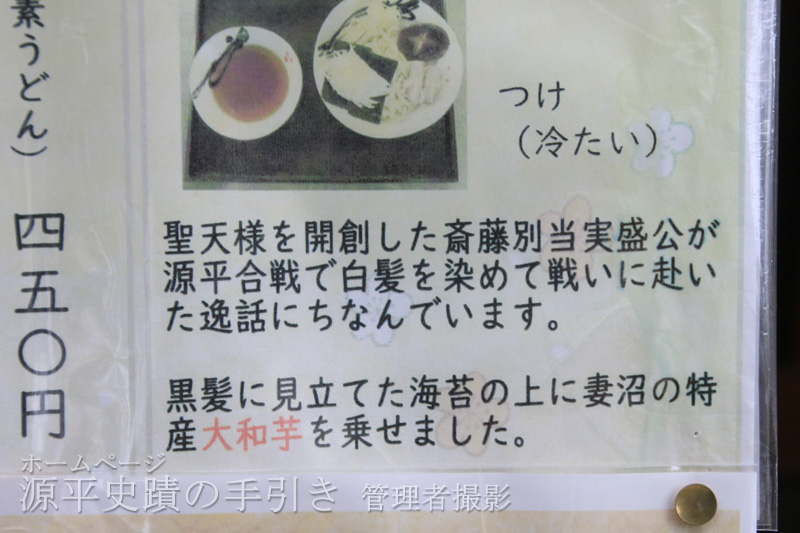 素うどん）
四五〇円
つけ
（冷たい）
聖天様を開創した斎藤別当実盛公が
源平合戦で白髪を染めて戦いに赴い
た逸話にちなんでいます。
黒髪に見立てた海苔の上に妻沼の特
産大和芋を乗せました。
ホームページ
源平史蹟の手引き 管理者撮影